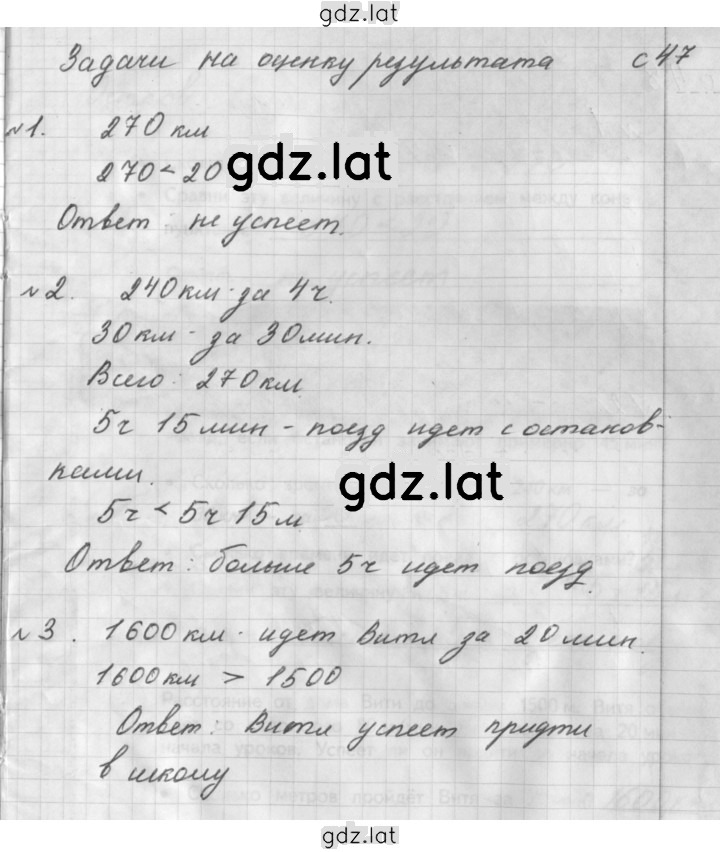 gdz.lat
Задачи на оценку результата с 47
№1. 270 км
270 < 20
gdz.lat
Ответ: не успеет.
№2. 240 км за 4 ч.
30 км - за 30 мин.
Всего: 270 км
5 ч 15 мин - поезд идет с останов-
ками.
gdz.lat
5 ч < 5 ч 15 м
Ответ: больше 5 ч идет поезд.
№3. 1600 км идет Витя за 20 мин.
1600 км > 1500
Ответ: Витя успеет придти
в школу
gdz.lat